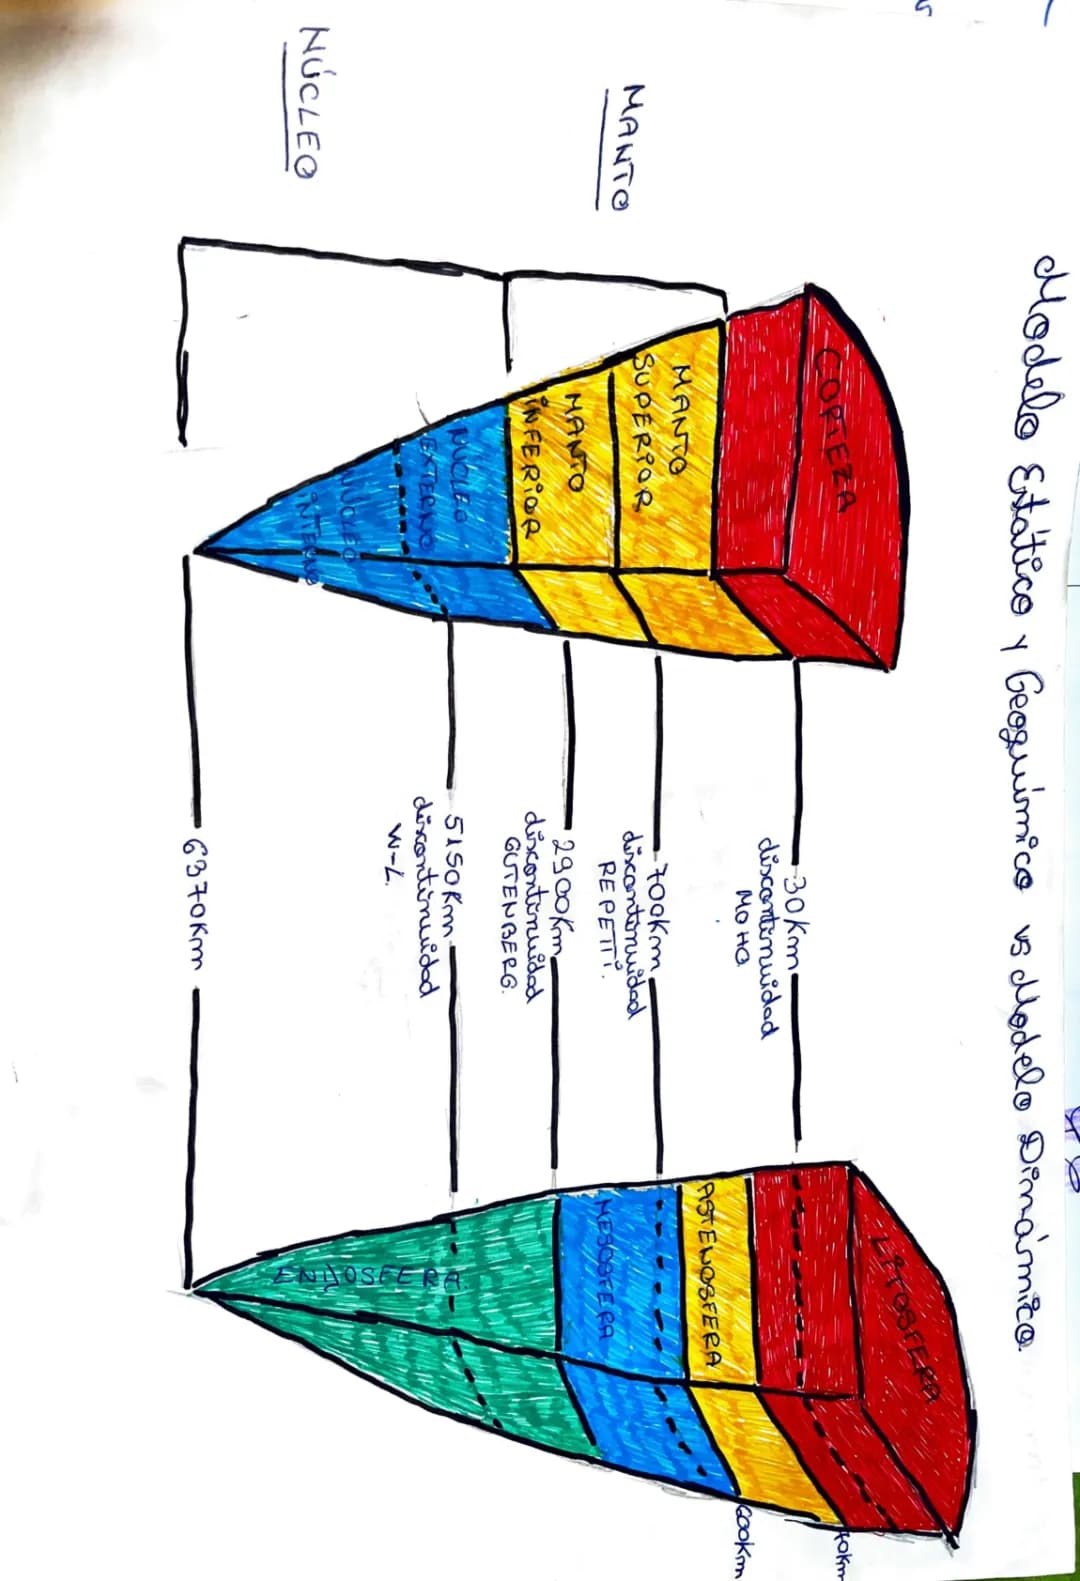 Modelo Estático y Geoquímico vs Modelo Dinámico
CORTEZA
MANTO
SUPERIOR
MANTO
INFERIOR
NÚCLEO
EXTERNO
NÚCLEO
INTERNO
MANTO
NÚCLEO
30Km
discontinuidad
MOHO
700Km
discontinuidad
REPETTI.
2900Km
discontinuidad
GUTENBERG.
5150Km
discontinuidad
W-L.
6370Km
LITOSFERA
ASTENOSFERA
MESOSFERA
ENDOSFERA